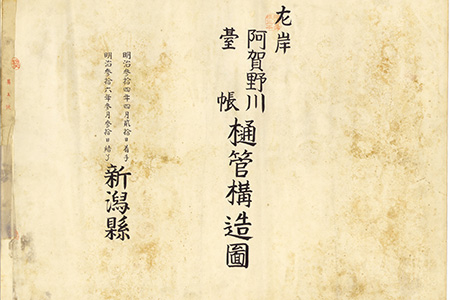 左岸
阿賀野川
臺帳
樋管構造圖
明治参拾四年四月貳拾日着手
明治参拾六年参月参拾日結了
新潟縣